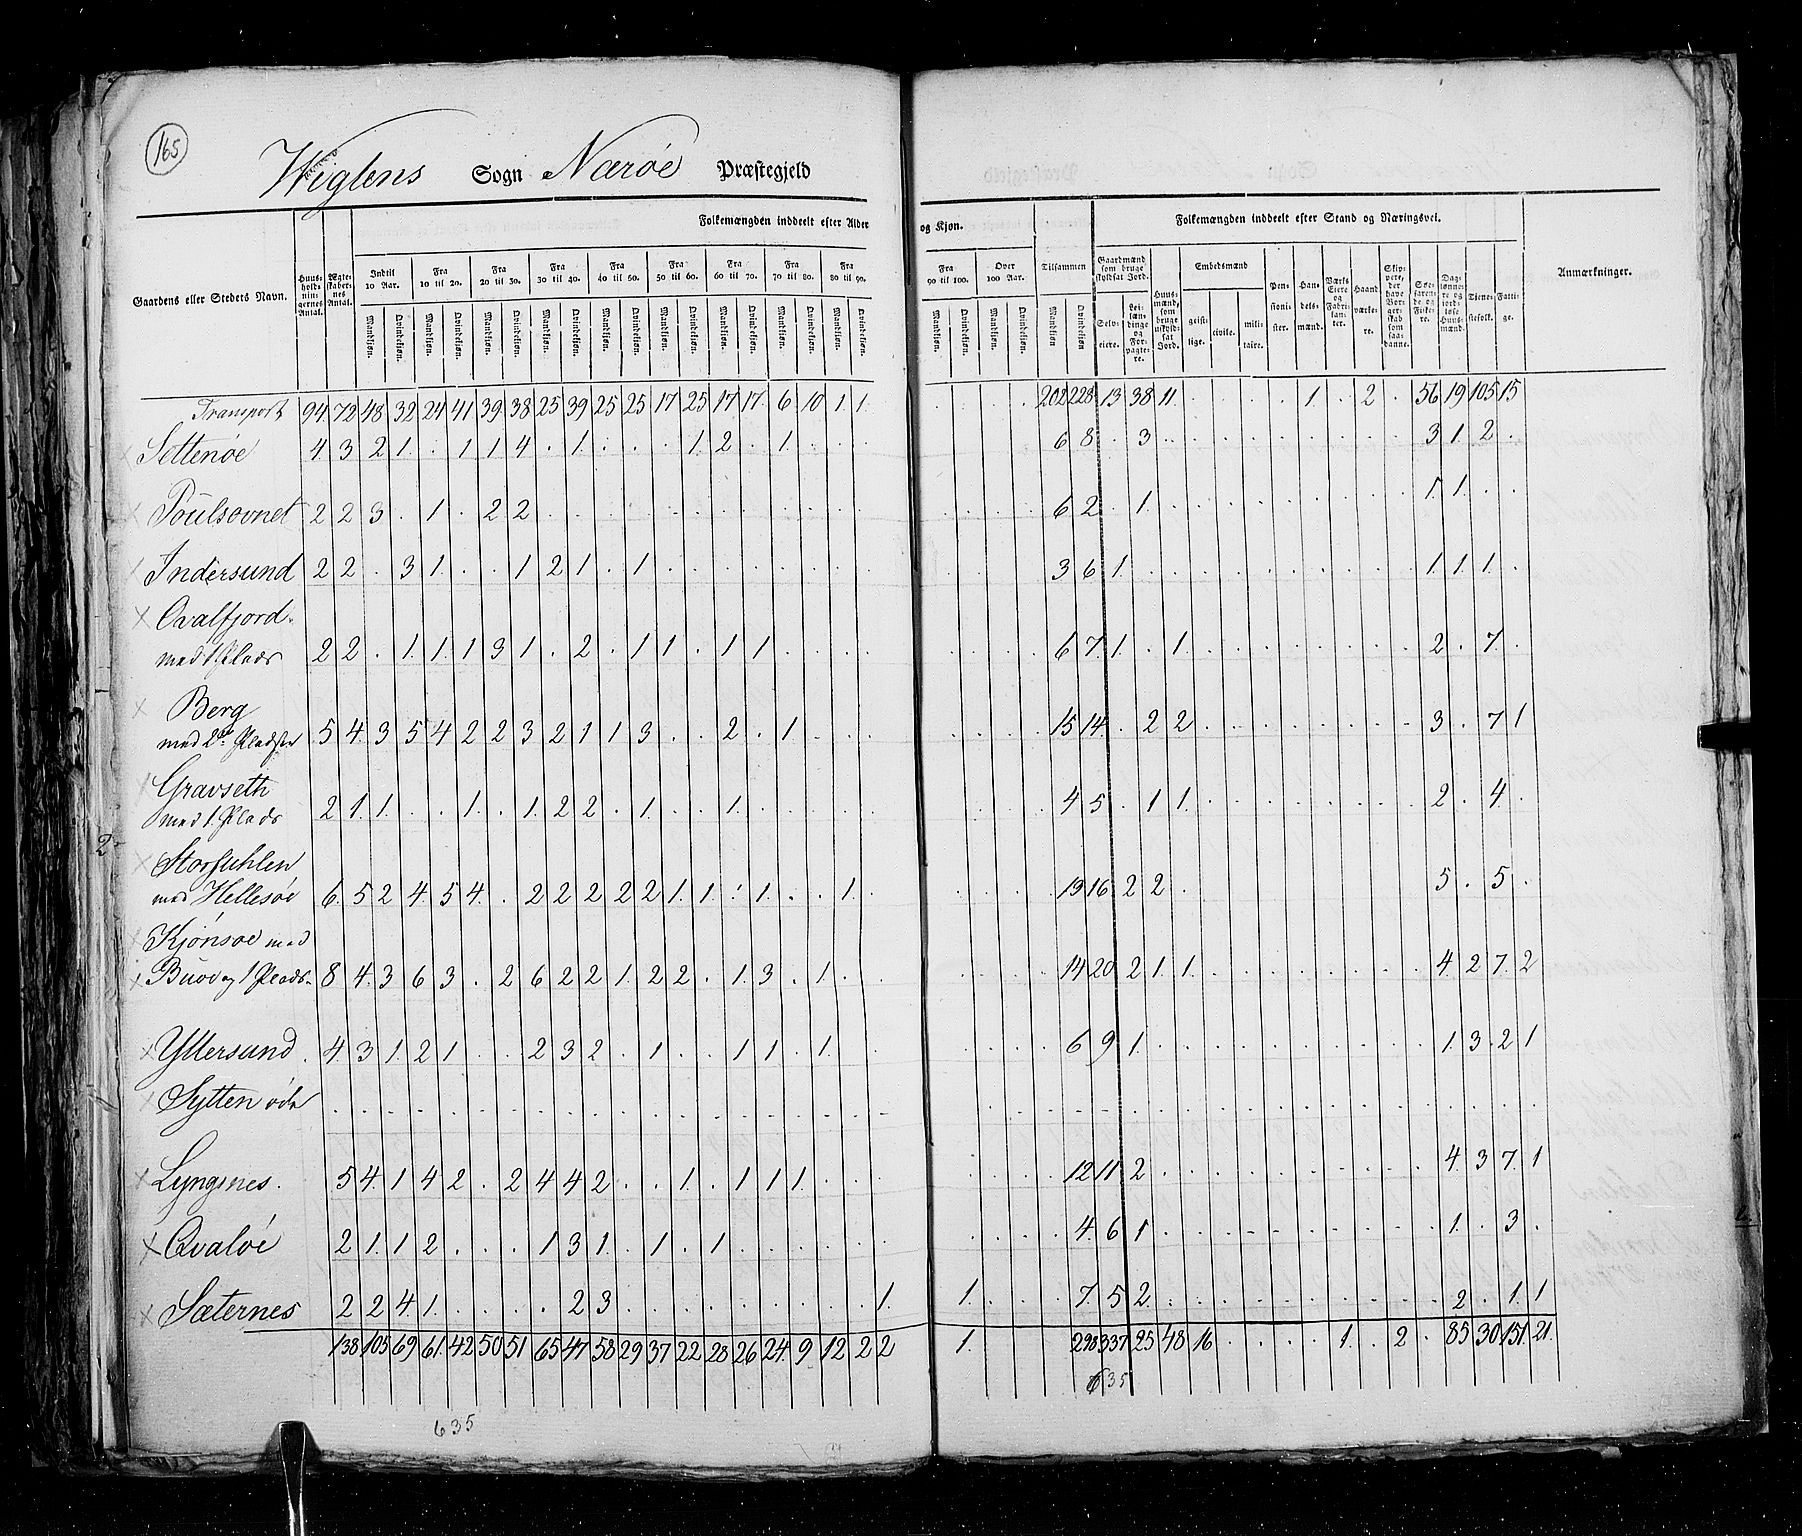 165
Wiglens Sogn Nærøe Præstegjeld
Gaardens eller Stedets Navn.
Huus-holdnin-gernes Antal.
Ægte-skaber-nes Antal.
Folkemængden inddeelt efter Alder og Kjøn.
Indtil 10 Aar.
Fra 10 til 20.
Fra 20 til 30.
Fra 30 til 40.
Fra 40 til 50.
Fra 50 til 60.
Fra 60 til 70.
Fra 70 til 80.
Fra 80 til 90.
Fra 90 til 100.
Over 100 Aar.
Tilsammen
Mandkjøn. Qvindekjøn. Mandkjøn. Qvindekjøn. Mandkjøn. Qvindekjøn. Mandkjøn. Qvindekjøn. Mandkjøn. Qvindekjøn. Mandkjøn. Qvindekjøn. Mandkjøn. Qvindekjøn. Mandkjøn. Qvindekjøn. Mandkjøn. Qvindekjøn. Mandkjøn. Qvindekjøn. Mandkjøn. Qvindekjøn. Mandkjøn Qvindekjøn.
Folkemængden inddeelt efter Stand og Næringsvei.
Gaardmænd som bruge skyldsat Jord.
Selv-eiere.
Lei-læn-dinge og For-pagte-re.
Huus-mænd, som bruge uskyld-sat Jord.
Embedsmænd
geist-lige.
civile.
mili-taire.
Pen-sioni-ster.
Han-dels-mænd.
Værks Eiere og Fabri-kan-ter.
Haand-værke-re.
Skip-pere, der have Bor-ger-skab som saa-danne.
Søe-faren-de og Fiske-re.
Dag-lønne-re og jord-løse Huus-mænd.
Tjene-stefolk.
Fatti-ge.
Anmærkninger.
Transport 94 72 48 32 24 41 39 38 25 39 25 25 17 25 17 17 6 10 1 1 . . . . 202 228 13 38 11 . . . . 1 . 2 . 56 19 105 15
Settenøe 4 3 2 1 . 1 1 4 . 1 . . . 1 2 . 1 . . . . . . . 6 8 . 3 . . . . . . . . . 3 1 2 .
Poulsovnet 2 2 3 . 1 . 2 2 . . . . . . . . . . . . . . . . 6 2 . 1 . . . . . . . . . 1 1 . .
Indersund 2 2 . 3 1 . . 1 2 1 . 1 . . . . . . . . . . . . 3 6 1 . . . . . . . . . . 1 1 1 .
Qvalfjord
med 1 Plads 2 2 . 1 1 1 3 1 . 2 . 1 1 . 1 1 . . . . . . . . 6 7 1 . 1 . . . . . . . . 2 . 7 .
Berg
med 2de Pladser 5 4 3 5 4 2 2 3 2 1 1 3 . . 2 . 1 . . . . . . . 15 14 . 2 2 . . . . . . . . 3 . 7 1
Gravseth
med 1 Plads 2 1 1 . . 1 . 1 2 2 . 1 . . 1 . . . . . . . . . 4 5 . 1 1 . . . . . . . . 2 . 4 .
2
Storfuhlen
med Hellesøe 6 5 2 4 5 4 . 2 2 2 2 2 1 1 . 1 . . 1 . . . . . 13 16 2 2 . 5 . 5 .
Kjønsøe med
Buøe og 1 Plads. 8 4 3 6 3 . 2 6 2 2 1 2 2 . 1 3 . 1 . . . . . 14 20 2 1 1 . . . . . . . . 4 2 7 2
Yttersund 4 3 1 2 1 . . 2 3 2 . 1 . . 1 1 . 1 . . . . . . 6 9 1 . . . . . . . . . . 1 3 2 1
Sytten øde . . . . . . . . . . . . . . . . . . . . . . . . . . . . . . . . . . . . . . . . .
Lyngsnes. 5 4 1 4 2 . 2 4 4 2 . . 1 . 1 1 1 . . . . . . . 12 11 2 . . . . . . . . . . 4 3 7 1
Qvaløe 2 1 1 2 . . . 1 3 1 . 1 . 1 . . . . . . . . . . 4 6 1 . . . . . . . . . . 1 . 3 .
Sæternes 2 2 4 1 . . . . 2 3 . . . . . . . . . 1 1 . . . 7 5 2 . . . . . . . . . . 2 . 1 1
138 105 69 61 42 50 51 65 47 58 29 37 22 28 26 24 9 12 2 2 1 298 337 25 48 16 . . . . 1 . 2 . 85 30 151 21
635
635